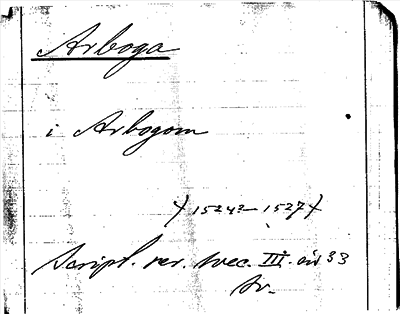 Arboga
i Arbogom
(1524?–1527)
Script. rer. svec. III. 33
Sv.